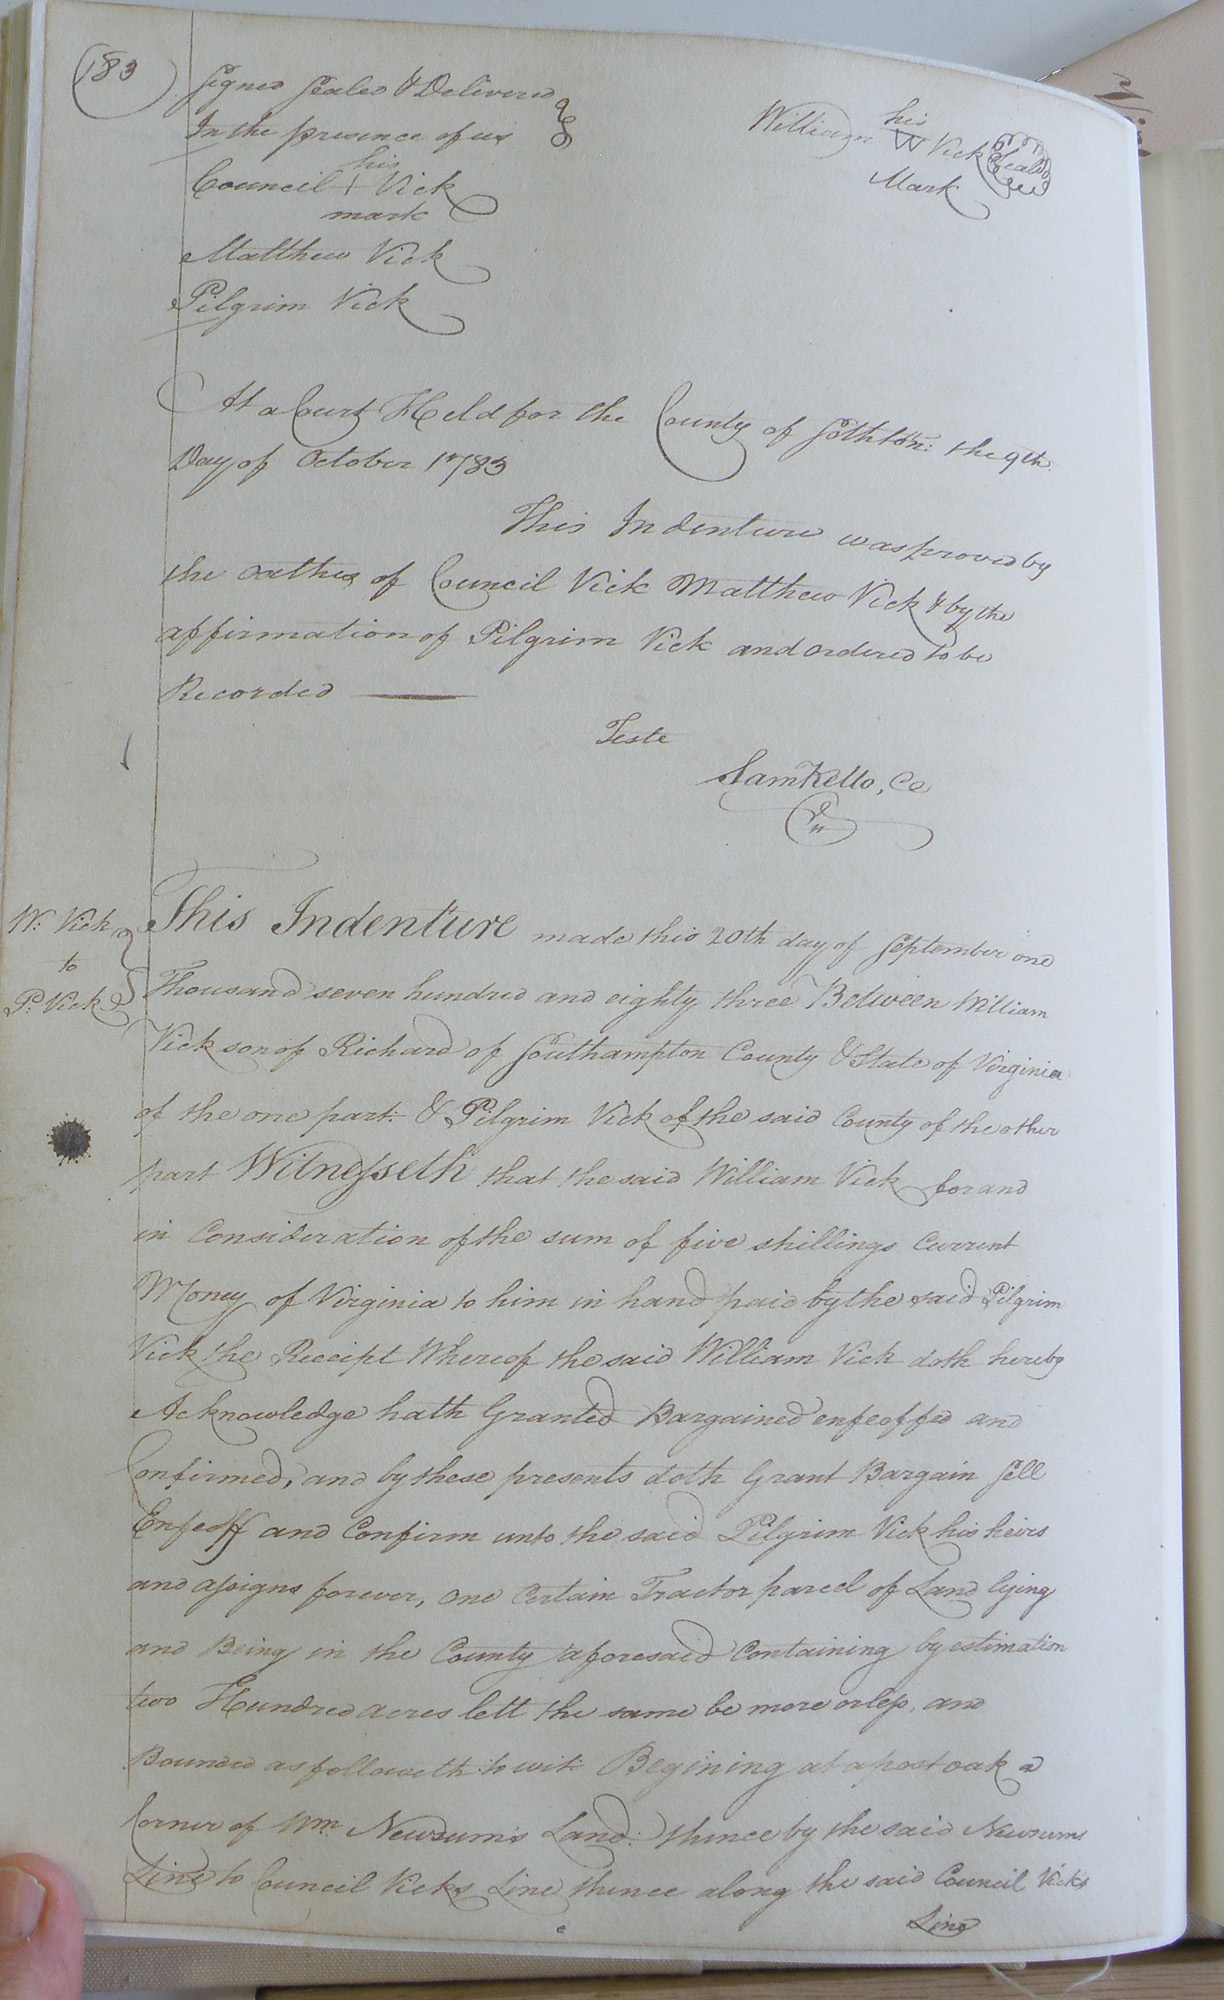 183
Signed Sealed & Delivered
In the presence of us
his
Council + Vick
mark
Matthew Vick
Pilgrim Vick
his
William W Vick Seal
Mark
At a Court Held for the County of Sothton: the 9th
Day of October 1783
This Indenture was proved by
the oathes of Council Vick Matthew Vick & by the
affirmation of Pilgrim Vick and ordered to be
Recorded
Teste
Sam Kello, Co
W: Vick
to
P: Vick
This Indenture made this 20th day of September one
Thousand seven hundred and eighty three Between William
Vick son of Richard of Southampton County & State of Virginia
of the one part: & Pilgrim Vick of the said County of the other
part Witnesseth that the said William Vick for and
in Consideration of the sum of five shillings Current
Money of Virginia to him in hand paid by the said Pilgrim
Vick the Receipt Whereof the said William Vick doth hereby
Acknowledge hath Granted Bargained enfeoffed and
Confirmed, and by these presents doth Grant Bargain Sell
Enfeoff and Confirm unto the said Pilgrim Vick his heirs
and assigns forever, one Certain Tract or parcel of Land lying
and Being in the County aforesaid Containing by estimation
two Hundred acres lett the same be more or less, and
Bounded as followeth to wit: Begining at a post oak a
Corner of Wm. Newsum's Land: thence by the said Newsums
Line to Council Vicks Line thence along the said Council Vick's
Line